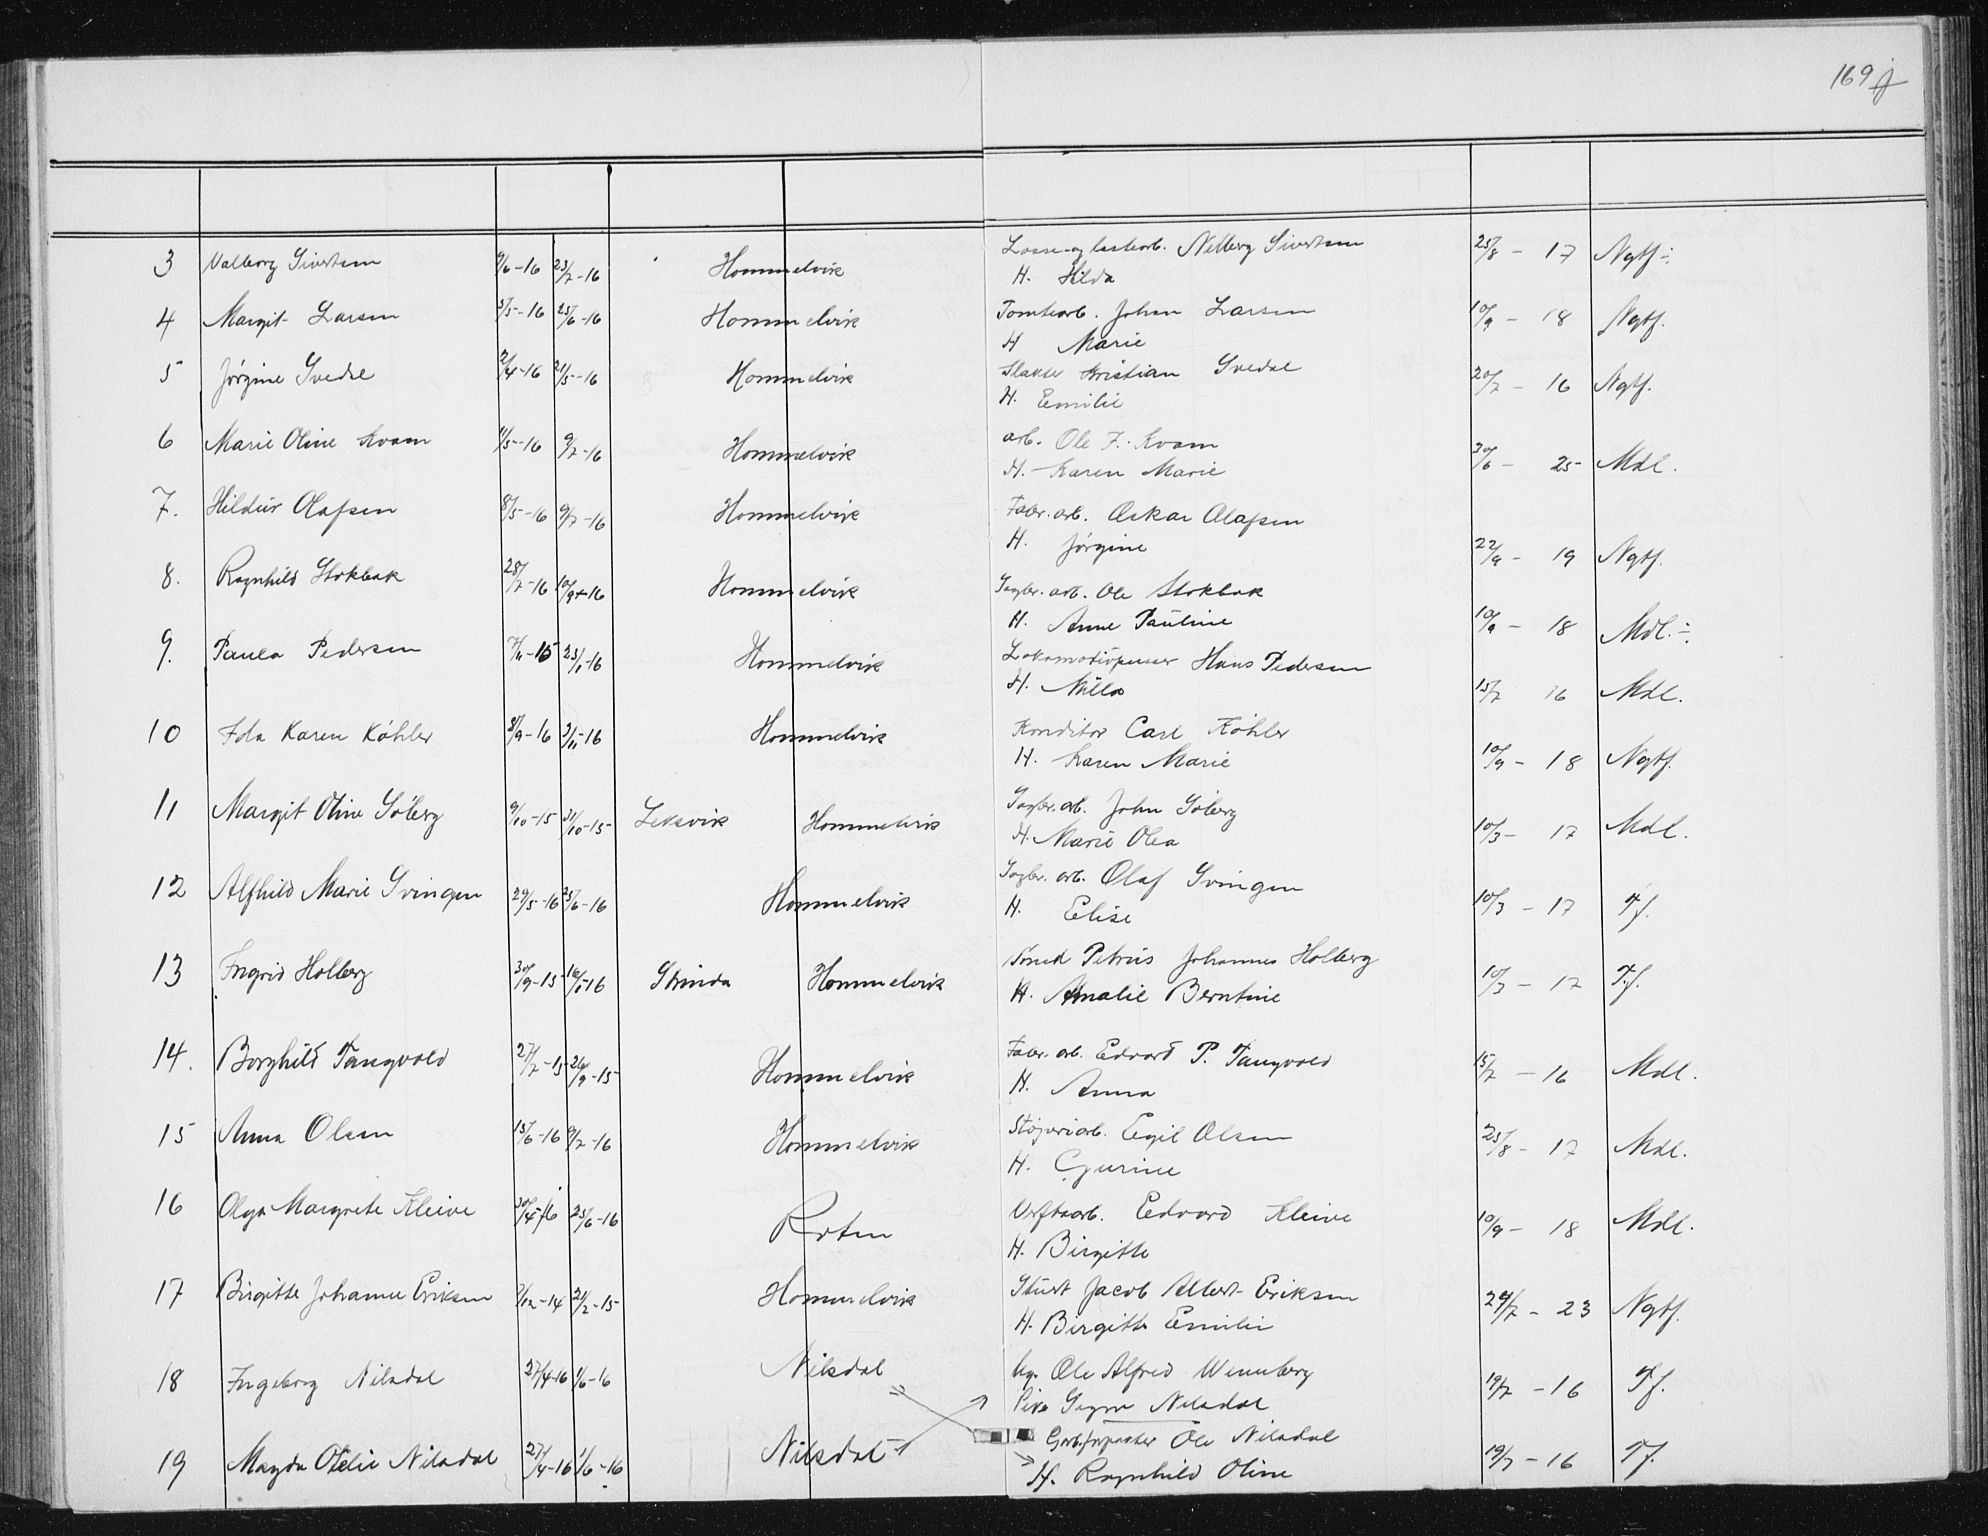 169
3 Valborg Sivertsen 9/6-16 23/7-16 Hommelvik Losse-og lastearb. Nelberg Sivertsen 25/8 - 17 Ngtf ÷
H. Hilda
4 Margit Larsen 5/5-16 25/6-16 Hommelvik Tomtearb. Johan Larsen 10/9 - 18 Ngtf.
H Marie
5 Jørgine Svedal 2/4-16 21/5-16 Hommelvik Slakter Kristian Svedal 20/7 - 16 Ngtf.
H. Emilie
6 Marie Oline Kvam 11/5-16 9/7-16 Hommelvik arb. Ole F. Kvam 30/6 - 25 Mdl.
H. Karen Marie
7. Hildur Olafsen 8/5-16 9/7-16 Hommelvik Fabr. arb. Oskar Olafsen
H. Jørgine 22/9 - 19 Ngtf.
8. Ragnhild Stokbak 28/7-16 10/9-16 Hommelvik Sagbr. arb. Ole Stokbak
H. Anne Pauline 10/9 - 18 Mdl. ÷
9. Paula Pedersen 23/1-16 Hommelvik Lokomotivpusser Hans Pedersen
H. Milla 15/7 16 Mdl.
10 Ida Karen Köhler 8/9-16 Hommelvik Konditor Carl Köhler
H. Karen Marie 10/9 - 18 Ngtf.
11 Margit Oline Söberg 9/10-15 31/10-15 Leksvik Hommelvik Sagbr. arb. John Söberg
H. Marie Olea 10/3 - 17 Mdl.
12 Alfhild Marie Svingen 29/5-16 25/6-16 Hommelvik Sagbr. arb. Olaf Svingen
H. Elise 10/3 - 17 Tf.
13 Ingrid Holberg 30/9-15 16/1-16 Strinda Hommelvik Smed Petrus Johannes Holberg
H. Amalie Berntine 10/3 - 17 Tf.
14. Borghild Tangvold 27/7-15 26/9-15 Hommelvik Fabr. arb. Edvard P. Tangvold 15/7 - 16 Mdl.
H. Anna
15 Anna Olsen 15/6-16 9/7-16 Hommelvik Støperiarb. Egil Olsen 25/8 - 17 Mdl.
H. Gjurine
16 Olga Margrete Kleive 30/4-16 25/6-16 Roten Verftsarb. Edvard Kleive 10/9 - 18 Mdl.
H. Birgitte
17 Birgitte Johanne Eriksen 21/2-15 Hommelvik Stuert Jacob Albert Eriksen 29/7 - 23 Ngtf.
H. Birgitte Emilie
18 Ingeborg Nilsdal 27/4-16 1/6-16 Nilsdal Ole Alfred Wennberg 19/7 - 16 Tf.
Pike Signe Nilsdal
Ole Nilsdal
19 Magda Otelie Nilsdal 27/4-16 1/6-16 Nilsdal H. Ragnhild Oline 19/7 - 16 Tf.